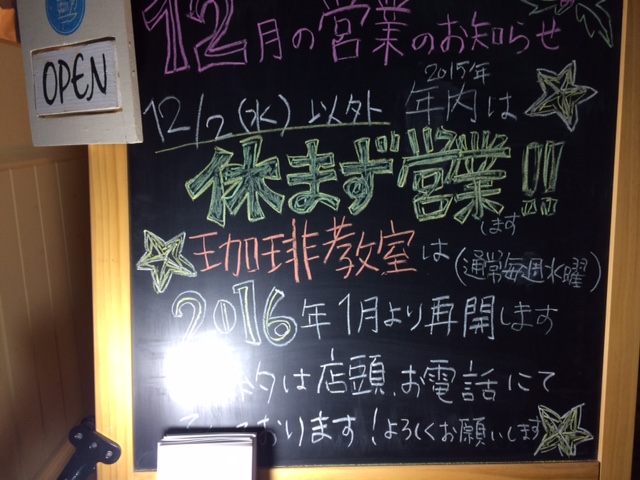 OPEN
12月の営業のお知らせ
12/2(水)以外 2015年 年内は
休まず営業!!
します
珈琲教室は(通常毎週水曜)
2016年1月より再開します
約は店頭、お電話にて
おります!よろしくお願いします